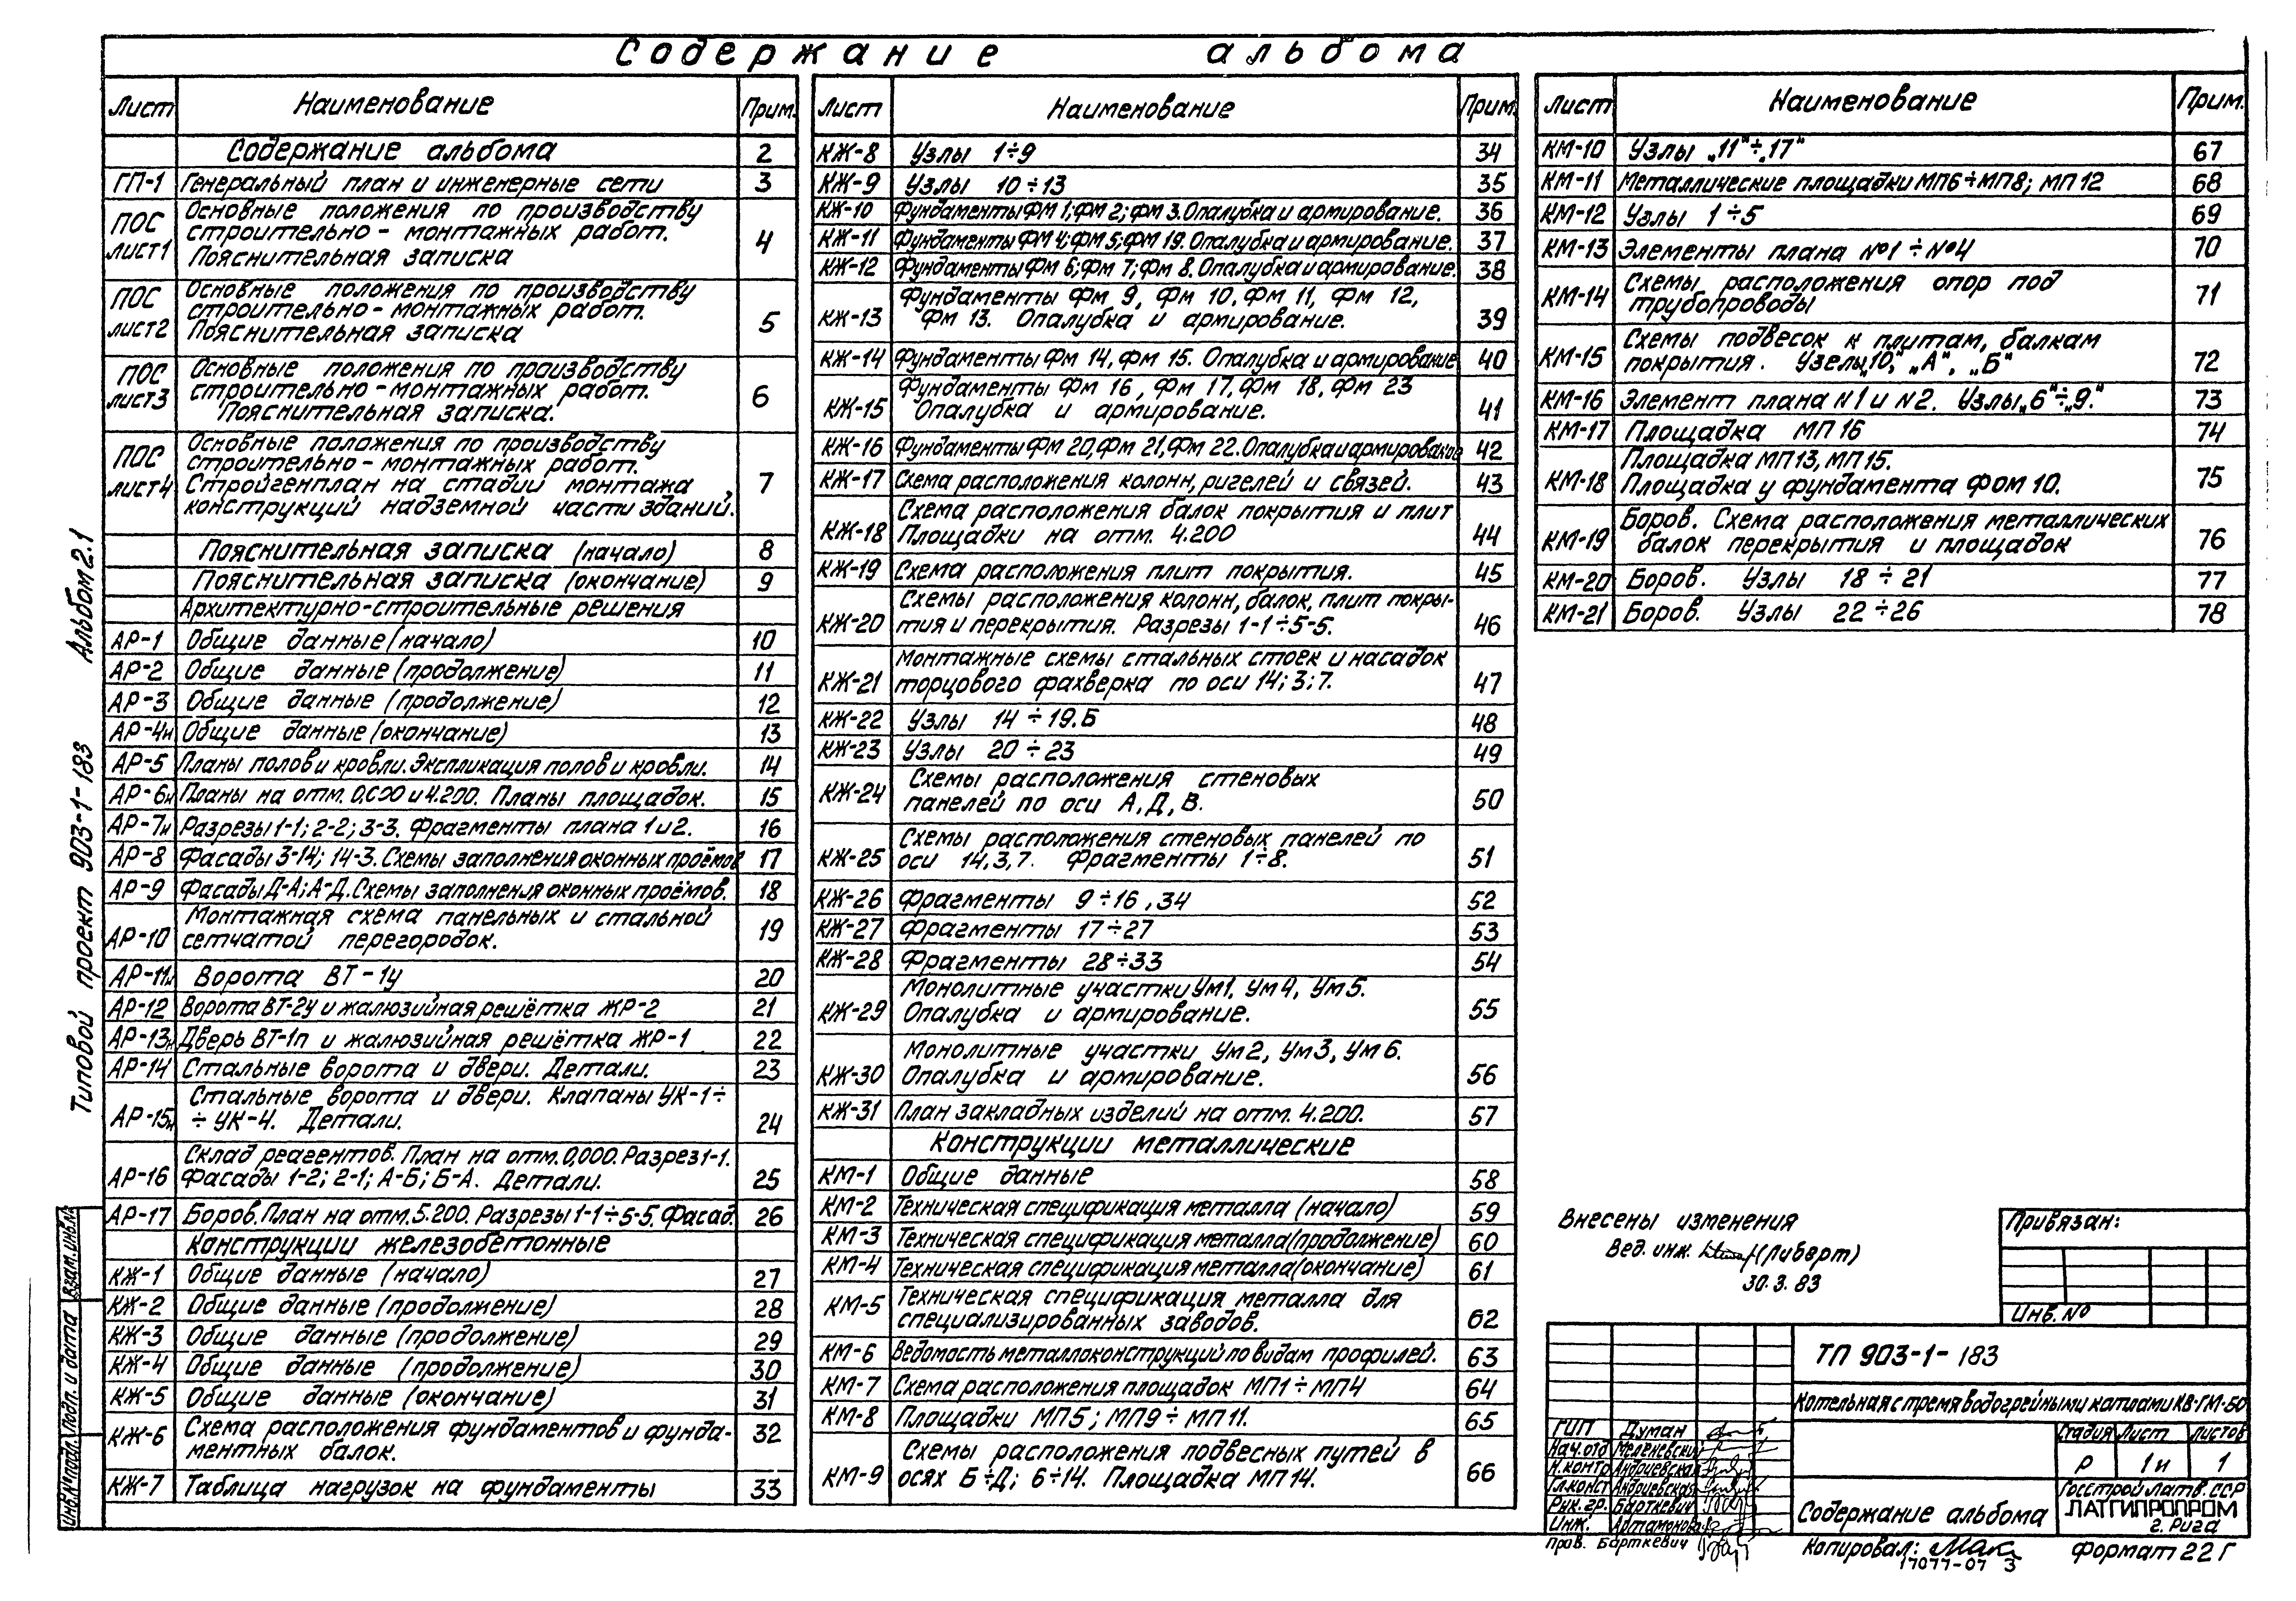 Содержание альбома
Лист Наименование Прим.
Содержание альбома 2
ГП-1 Генеральный план и инженерные сети 3
ПОС лист1 Основные положения по производству
строительно-монтажных работ.
Пояснительная записка 4
ПОС лист2 Основные положения по производству
строительно-монтажных работ.
Пояснительная записка 5
ПОС лист3 Основные положения по производству
строительно-монтажных работ.
Пояснительная записка. 6
ПОС лист4 Основные положения по производству
строительно-монтажных работ.
Стройгенплан на стадии монтажа
конструкций надземной части зданий. 7
Пояснительная записка (начало) 8
Пояснительная записка (окончание) 9
Архитектурно-строительные решения
АР-1 Общие данные (начало) 10
АР-2 Общие данные (продолжение) 11
АР-3 Общие данные (продолжение) 12
АР-4и Общие данные (окончание) 13
АР-5 Планы полов и кровли. Экспликация полов и кровли. 14
АР-6и Планы на отм. 0,000 и 4.200. Планы площадок. 15
АР-7и Разрезы 1-1; 2-2; 3-3. Фрагменты плана 1 и 2. 16
АР-8 Фасады 3-14; 14-3. Схемы заполнения оконных проёмов 17
АР-9 Фасады Д-А; А-Д. Схемы заполнения оконных проёмов. 18
АР-10 Монтажная схема панельных и стальной
сетчатой перегородок. 19
АР-11и Ворота ВТ-1у 20
АР-12 Ворота ВТ-2у и жалюзийная решётка ЖР-2 21
АР-13и Дверь ВТ-1п и жалюзийная решётка ЖР-1 22
АР-14 Стальные ворота и двери. Детали. 23
АР-15и Стальные ворота и двери. Клапаны УК-1÷
÷ УК-4. Детали. 24
АР-16 Склад реагентов. План на отм. 0,000. Разрез 1-1.
Фасады 1-2; 2-1; А-Б; Б-А. Детали. 25
АР-17 Боров. План на отм. 5.200. Разрезы 1-1÷5-5. Фасад. 26
Конструкции железобетонные
КЖ-1 Общие данные (начало) 27
КЖ-2 Общие данные (продолжение) 28
КЖ-3 Общие данные (продолжение) 29
КЖ-4 Общие данные (продолжение) 30
КЖ-5 Общие данные (окончание) 31
КЖ-6 Схема расположения фундаментов и фунда-
ментных балок. 32
КЖ-7 Таблица нагрузок на фундаменты 33
Лист Наименование Прим.
КЖ-8 Узлы 1÷9 34
КЖ-9 Узлы 10÷13 35
КЖ-10 Фундаменты Фм 1; Фм 2; Фм 3. Опалубка и армирование. 36
КЖ-11 Фундаменты Фм 4; Фм 5; Фм 19. Опалубка и армирование. 37
КЖ-12 Фундаменты Фм 6; Фм 7; Фм 8. Опалубка и армирование. 38
КЖ-13 Фундаменты Фм 9, Фм 10, Фм 11, Фм 12,
Фм 13. Опалубка и армирование. 39
КЖ-14 Фундаменты Фм 14, Фм 15. Опалубка и армирование 40
КЖ-15 Фундаменты Фм 16, Фм 17, Фм 18, Фм 23
Опалубка и армирование. 41
КЖ-16 Фундаменты Фм 20, Фм 21, Фм 22. Опалубка и армирование 42
КЖ-17 Схема расположения колонн, ригелей и связей. 43
КЖ-18 Схема расположения балок покрытия и плит
Площадки на отм. 4.200 44
КЖ-19 Схема расположения плит покрытия. 45
КЖ-20 Схемы расположения колонн, балок, плит покры-
тия и перекрытия. Разрезы 1-1÷5-5. 46
КЖ-21 Монтажные схемы стальных стоек и насадок
торцового фахверка по оси 14; 3; 7. 47
КЖ-22 Узлы 14÷19.Б 48
КЖ-23 Узлы 20÷23 49
КЖ-24 Схемы расположения стеновых
панелей по оси А, Д, В. 50
КЖ-25 Схемы расположения стеновых панелей по
оси 14, 3, 7. Фрагменты 1÷8. 51
КЖ-26 Фрагменты 9÷16, 34 52
КЖ-27 Фрагменты 17÷27 53
КЖ-28 Фрагменты 28÷33 54
КЖ-29 Монолитные участки Ум1, Ум4, Ум5.
Опалубка и армирование. 55
КЖ-30 Монолитные участки Ум2, Ум3, Ум6.
Опалубка и армирование. 56
КЖ-31 План закладных изделий на отм. 4.200. 57
Конструкции металлические
КМ-1 Общие данные 58
КМ-2 Техническая спецификация металла (начало) 59
КМ-3 Техническая спецификация металла (продолжение) 60
КМ-4 Техническая спецификация металла (окончание) 61
КМ-5 Техническая спецификация металла для
специализированных заводов. 62
КМ-6 Ведомость металлоконструкций по видам профилей. 63
КМ-7 Схема расположения площадок МП1÷МП4 64
КМ-8 Площадки МП5; МП9÷МП11. 65
КМ-9 Схемы расположения подвесных путей в
осях Б÷Д; 6÷14. Площадка МП14. 66
Лист Наименование Прим.
КМ-10 Узлы „11"÷„17" 67
КМ-11 Металлические площадки МП6÷МП8; МП12 68
КМ-12 Узлы 1÷5 69
КМ-13 Элементы плана №1÷№4 70
КМ-14 Схемы расположения опор под
трубопроводы 71
КМ-15 Схемы подвесок к плитам, балкам
покрытия. Узелы „10", „А", „Б" 72
КМ-16 Элемент плана N1 и N2. Узлы „6"÷„9." 73
КМ-17 Площадка МП16 74
КМ-18 Площадка МП13, МП15.
Площадка у фундамента ФОМ 10. 75
КМ-19 Боров. Схема расположения металлических
балок перекрытия и площадок 76
КМ-20 Боров. Узлы 18÷21 77
КМ-21 Боров. Узлы 22÷26 78
Типовой проект 903-1-183 Альбом 2.1
Взам.инв.№
Подп. и дата
Инв.№подл.
Внесены изменения
Вед. инж. (Либерт)
30.3.83
Привязан:
Инв. №
ТП 903-1-183
Котельная с тремя водогрейными котлами КВ-ГМ-50
Стадия Лист Листов
Р 1и 1
Содержание альбома
Госстрой Латв. ССР
ЛАТГИПРОПРОМ
г. Рига
ГИП Думан
Нач.отд Меленевский
Н.контр Андриевская
Гл.конст Андриевская
Рук.гр. Барткевич
Инж. Артамонова
Пров. Барткевич
Копировал: Формат 22Г
17077-07 3